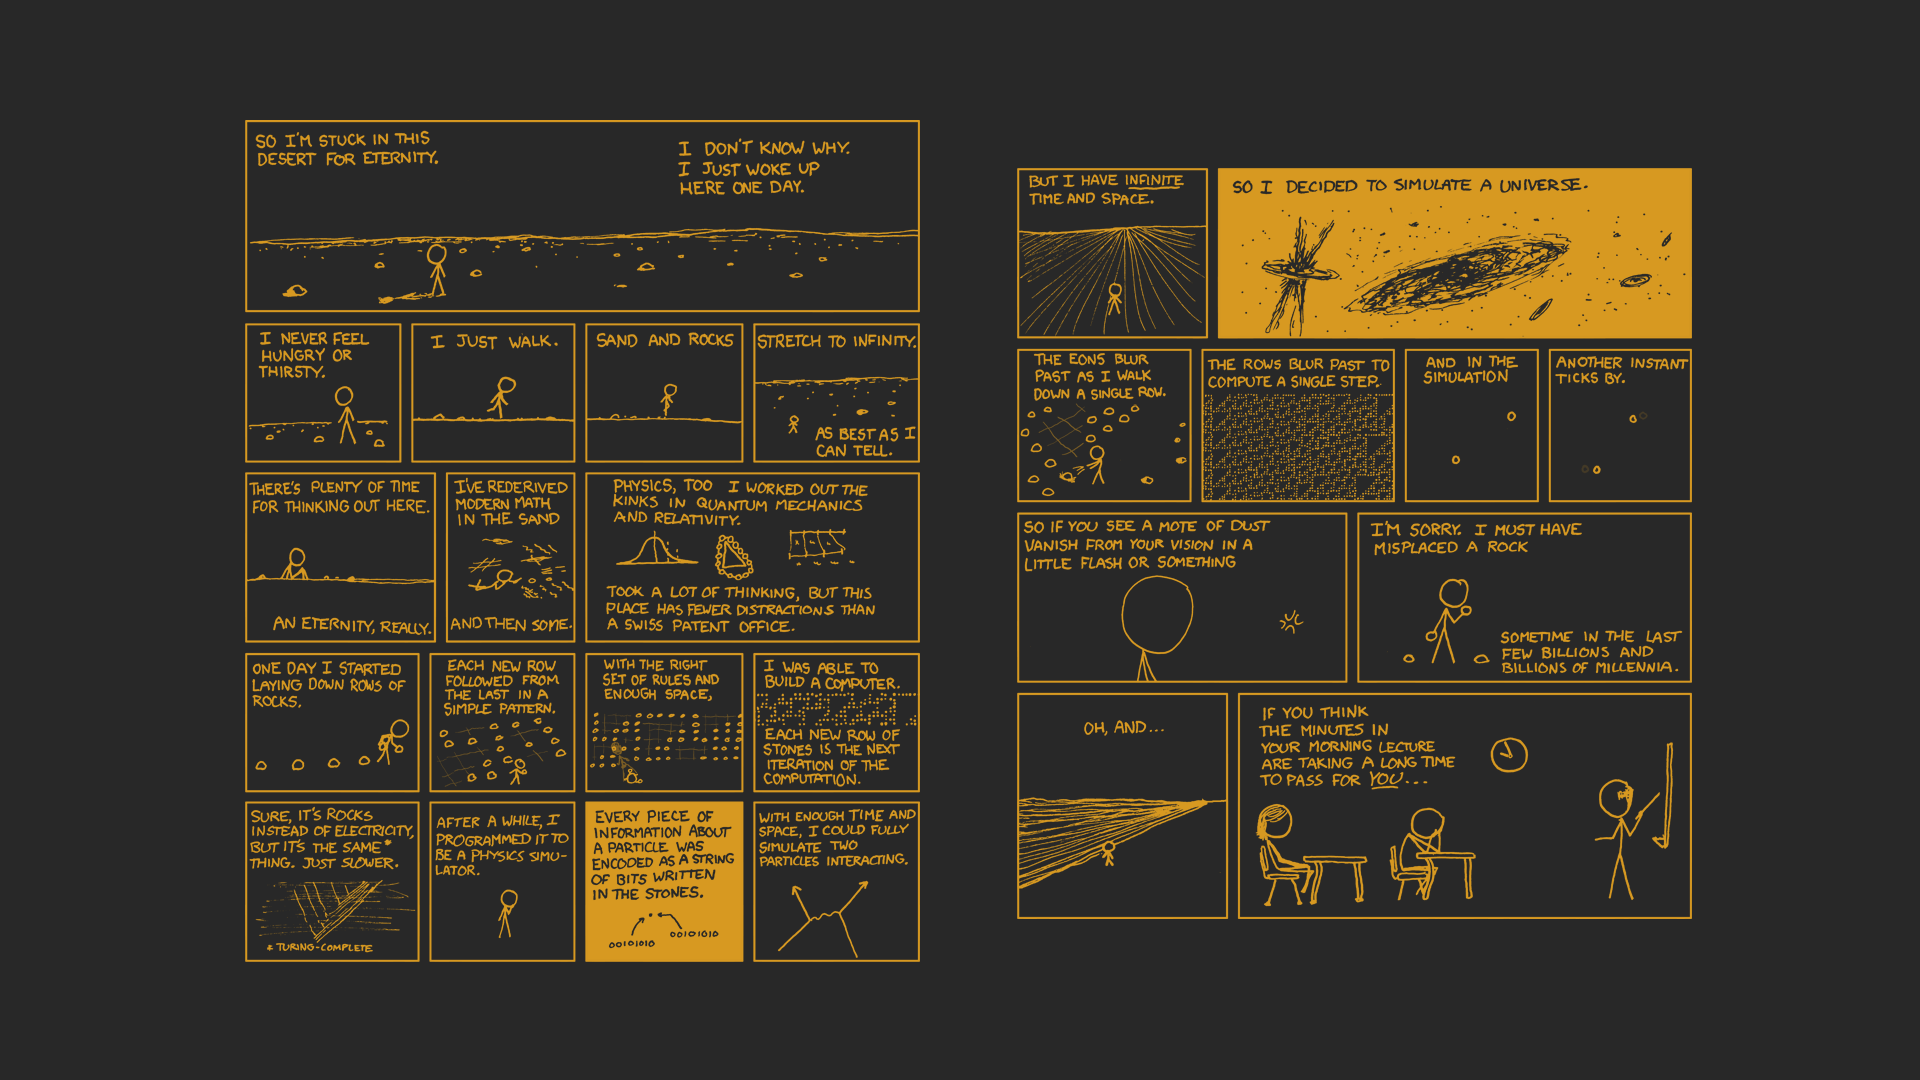 SO I'M STUCK IN THIS
DESERT FOR ETERNITY.
I DON'T KNOW WHY.
I JUST WOKE UP
HERE ONE DAY.
I NEVER FEEL
HUNGRY OR
THIRSTY.
I JUST WALK.
SAND AND ROCKS
STRETCH TO INFINITY.
AS BEST AS I
CAN TELL.
THERE'S PLENTY OF TIME
FOR THINKING OUT HERE.
AN ETERNITY, REALLY.
I'VE REDERIVED
MODERN MATH
IN THE SAND
AND THEN SOME.
PHYSICS, TOO I WORKED OUT THE
KINKS IN QUANTUM MECHANICS
AND RELATIVITY.
TOOK A LOT OF THINKING, BUT THIS
PLACE HAS FEWER DISTRACTIONS THAN
A SWISS PATENT OFFICE.
ONE DAY I STARTED
LAYING DOWN ROWS OF
ROCKS.
EACH NEW ROW
FOLLOWED FROM
THE LAST IN A
SIMPLE PATTERN.
WITH THE RIGHT
SET OF RULES AND
ENOUGH SPACE,
I WAS ABLE TO
BUILD A COMPUTER.
EACH NEW ROW OF
STONES IS THE NEXT
ITERATION OF THE
COMPUTATION.
SURE, IT'S ROCKS
INSTEAD OF ELECTRICITY,
BUT IT'S THE SAME*
THING. JUST SLOWER.
* TURING-COMPLETE
AFTER A WHILE, I
PROGRAMMED IT TO
BE A PHYSICS SIMU-
LATOR.
EVERY PIECE OF
INFORMATION ABOUT
A PARTICLE WAS
ENCODED AS A STRING
OF BITS WRITTEN
IN THE STONES.
00101010
00101010
WITH ENOUGH TIME AND
SPACE, I COULD FULLY
SIMULATE TWO
PARTICLES INTERACTING.
BUT I HAVE INFINITE
TIME AND SPACE.
SO I DECIDED TO SIMULATE A UNIVERSE.
THE EONS BLUR
PAST AS I WALK
DOWN A SINGLE ROW.
THE ROWS BLUR PAST TO
COMPUTE A SINGLE STEP.
AND IN THE
SIMULATION
ANOTHER INSTANT
TICKS BY.
SO IF YOU SEE A MOTE OF DUST
VANISH FROM YOUR VISION IN A
LITTLE FLASH OR SOMETHING
I'M SORRY. I MUST HAVE
MISPLACED A ROCK
SOMETIME IN THE LAST
FEW BILLIONS AND
BILLIONS OF MILLENNIA.
OH, AND...
IF YOU THINK
THE MINUTES IN
YOUR MORNING LECTURE
ARE TAKING A LONG TIME
TO PASS FOR YOU...